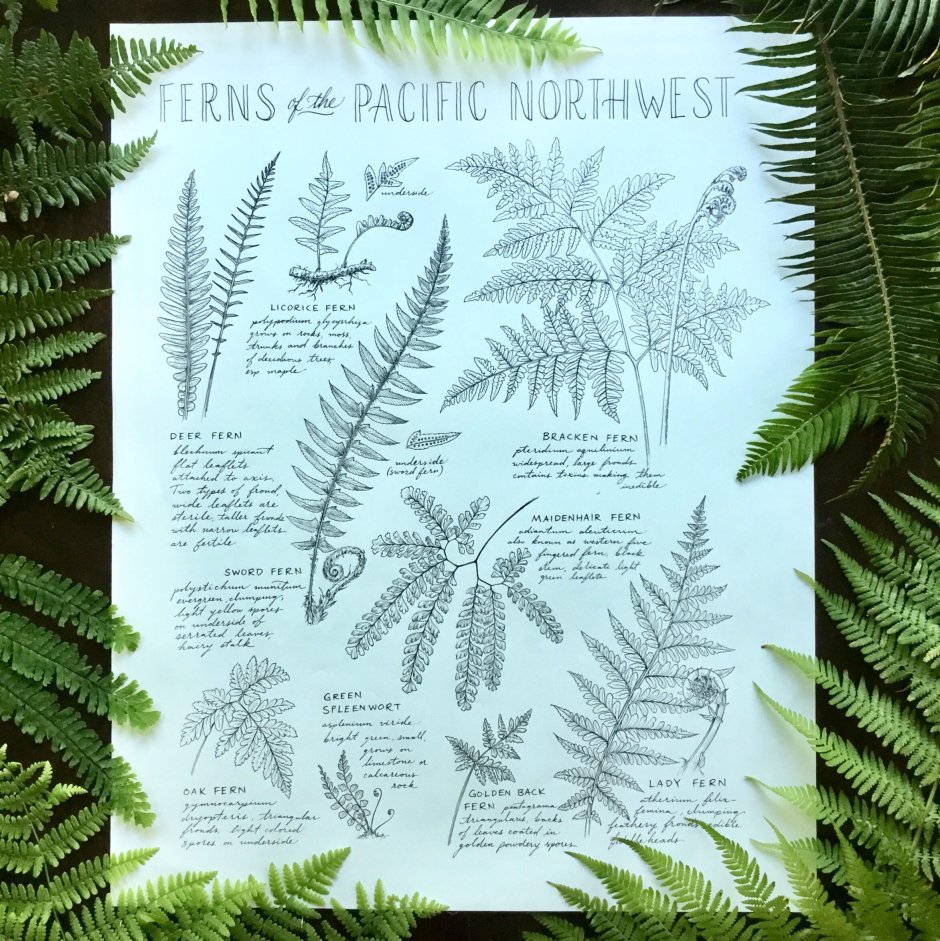 FERNS of the PACIFIC NORTHWEST
underside
LICORICE FERN
polypodium glycyrrhiza
grows on rocks, moss,
trunks and branches
of deciduous trees
esp. maple
DEER FERN
blechnum spicant
flat leaflets
attached to axis,
Two types of frond,
wide leaflets are
sterile, taller fronds
with narrow leaflets
are fertile
underside
(sword fern)
BRACKEN FERN
pteridium aquilinium
widespread, large fronds
contains toxins making them
inedible
SWORD FERN
polystichum munitum
evergreen, clumping,
light yellow spores
on underside of
serrated leaves,
hairy stalk
MAIDENHAIR FERN
adiantum aleuticum
also known as western five
fingered fern, black
stem, delicate light
green leaflets
OAK FERN
gymnocarpium
dryopteris, triangular
fronds, light colored
spores on underside
GREEN
SPLEENWORT
asplenium viride
bright green, small,
grows on
limestone or
calcareous
rock
GOLDEN BACK
FERN pentagrama
triangularis, backs
of leaves coated in
golden powdery spores
LADY FERN
atherium felix-
femina, clumping
feathery fronds edible
fiddleheads